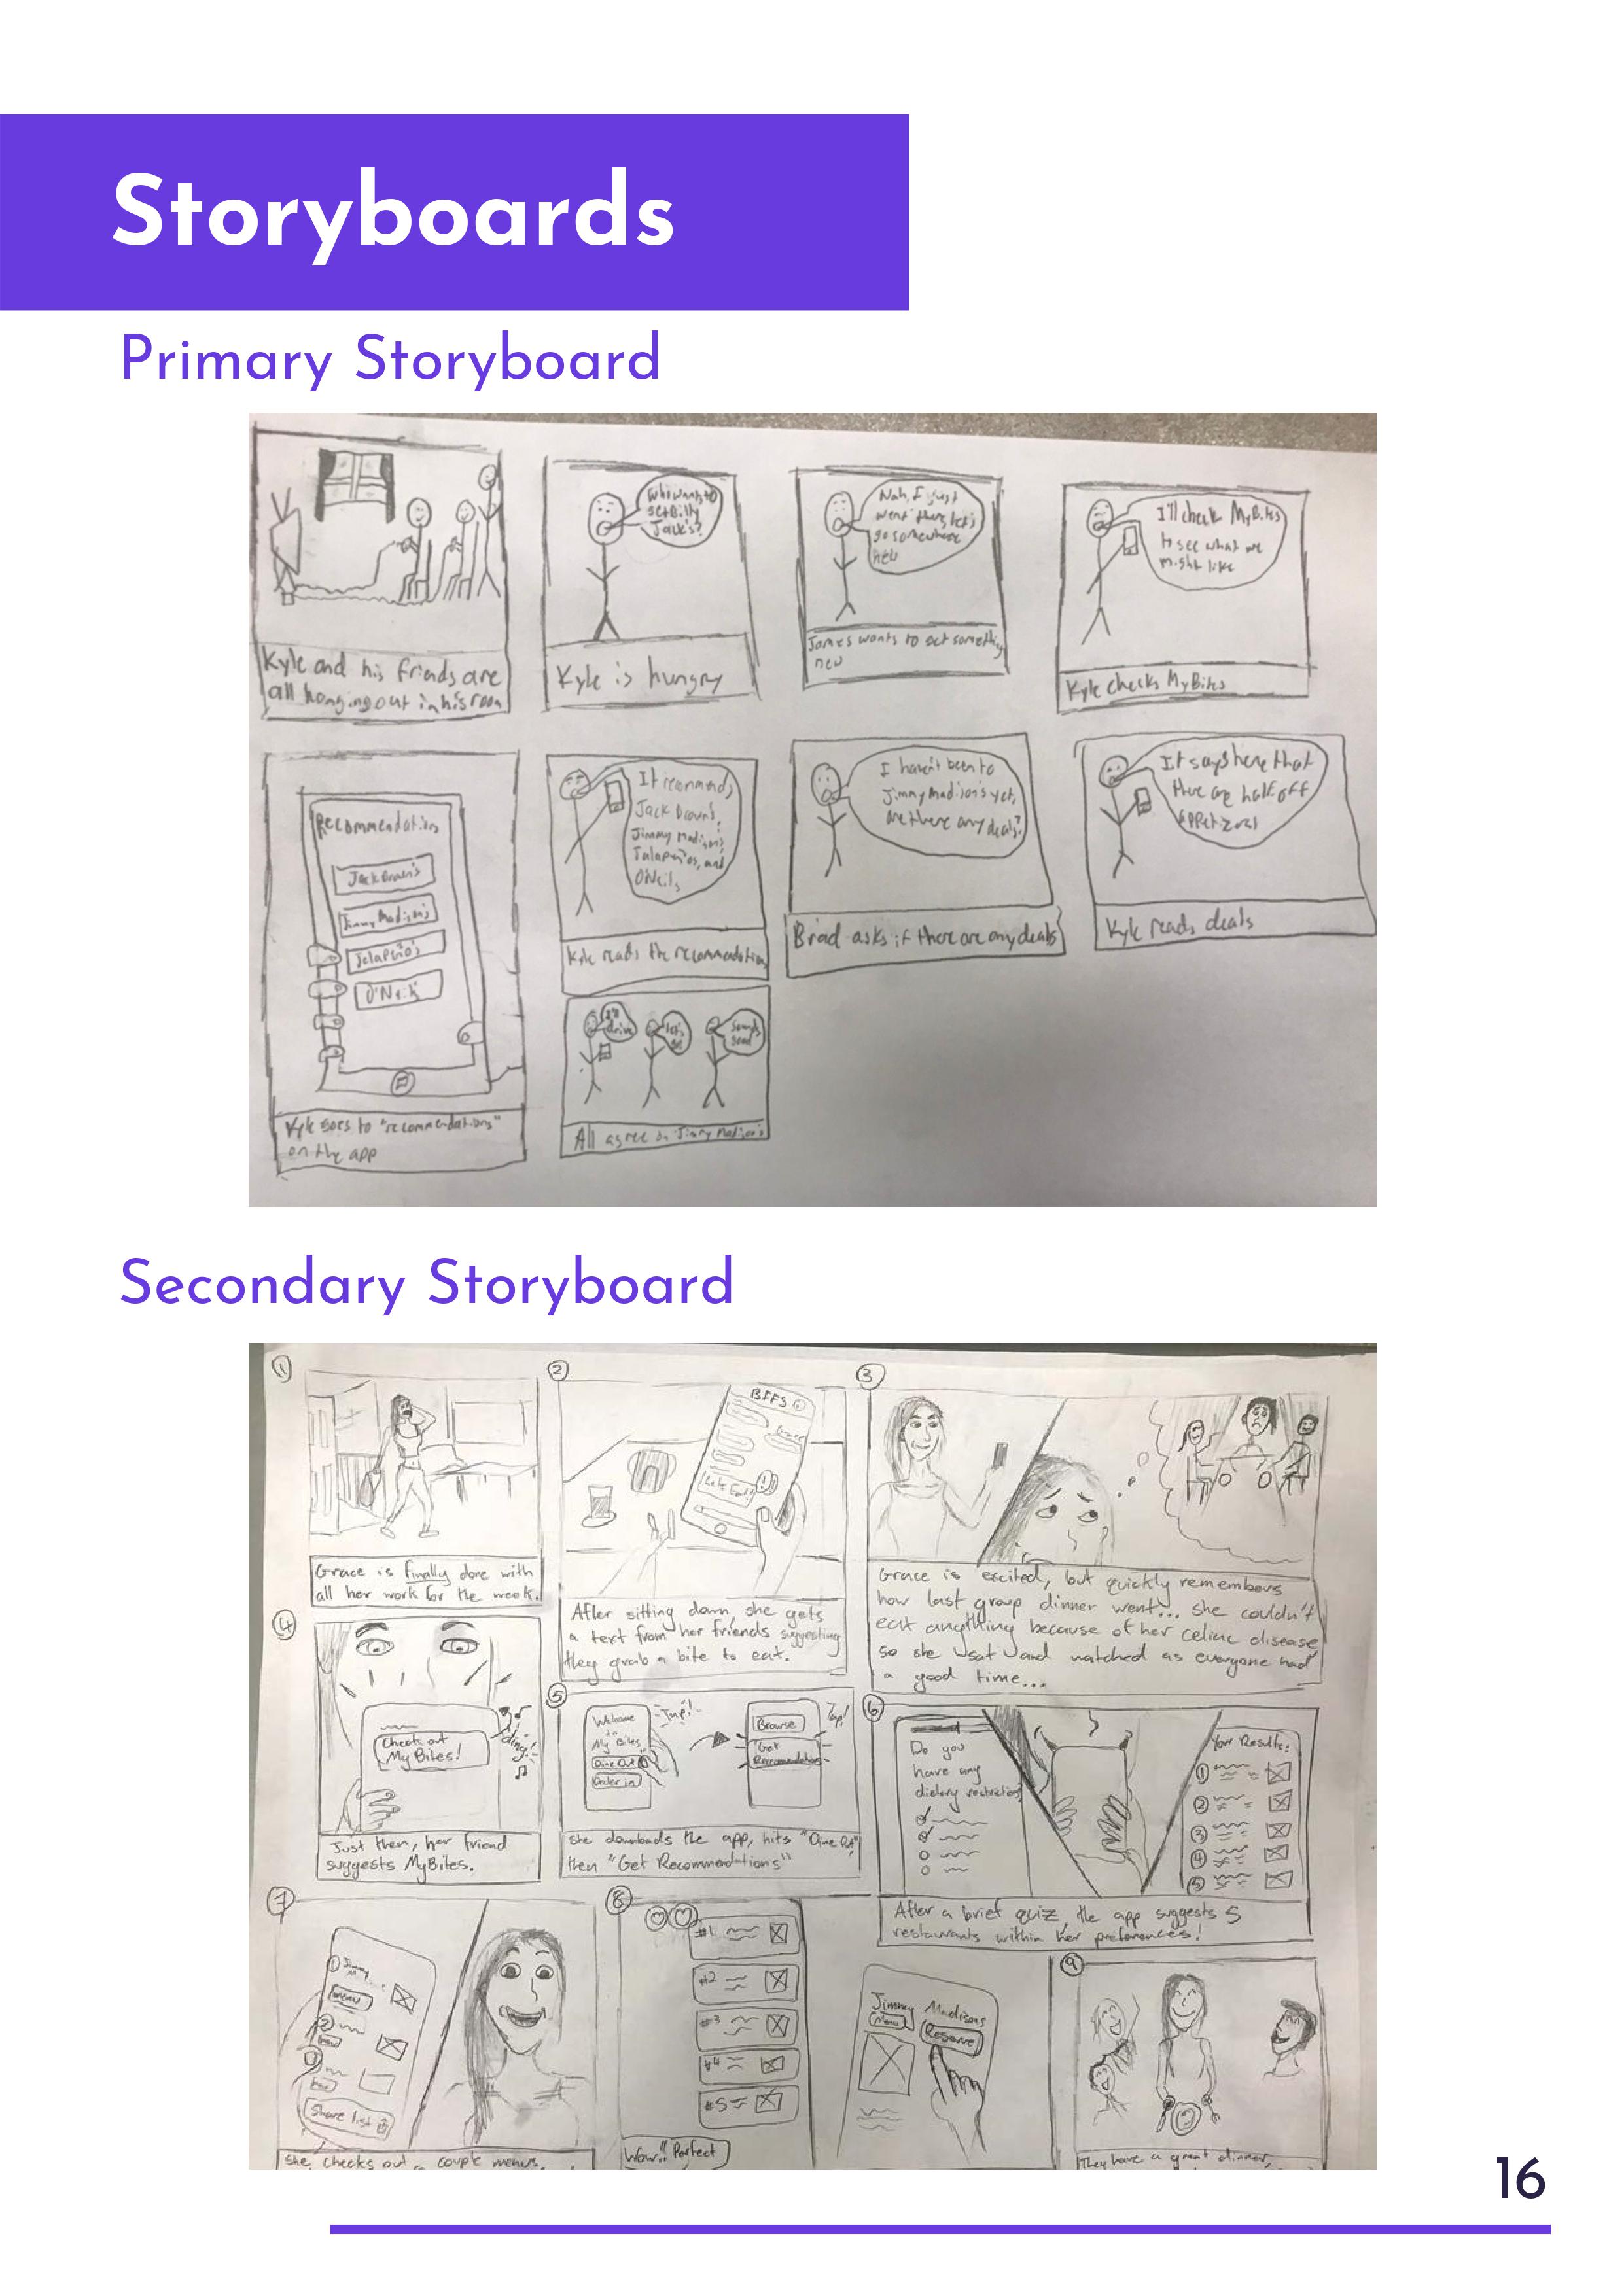 Storyboards
Primary Storyboard
Who wants to
get Billy
Jack's?
Nah, I just
went there, let's
go somewhere
new
I'll check MyBites
to see what we
might like
Kyle and his friends are
all hanging out in his room
Kyle is hungry
James wants to get something
new
Kyle checks MyBites
Recommendations
Jack Brown's
Jimmy Madison's
Jalapeño's
O'Neil's
Kyle goes to "recommendations"
on the app
It recommends
Jack Brown's,
Jimmy Madison's,
Jalapeños, and
O'Neils
Kyle reads the recommendations
I haven't been to
Jimmy Madison's yet,
are there any deals?
Brad asks if there are any deals
It says here that
there are half off
appetizers
Kyle reads deals
I'll
drive
let's
go
sounds
good
All agree on Jimmy Madison's
Secondary Storyboard
1
Grace is finally done with
all her work for the week.
2
BFFS
Grace
Lets Eat!
After sitting down, she gets
a text from her friends suggesting
they grab a bite to eat.
3
Grace is excited, but quickly remembers
how last group dinner went... she couldn't
eat anything because of her celiac disease
so she sat and watched as everyone had
a good time...
4
Check out
My Bites!
ding!
Just then, her friend
suggests MyBites.
5
Welcome
to
My Bites
Dine Out
Order in
Tap!
Browse
Get
Recommendations
Tap!
she downloads the app, hits "Dine Out",
then "Get Recommendations"
6
Do you
have any
dietary restrictions
Your Results:
1
2
3
4
5
After a brief quiz, the app suggests 5
restaurants within her preferences!
7
1 Jimmy
M...
menu
2
3
Share list
She checks out a couple menus,
8
#1
#2
#3
#4
#5
Wow!! Perfect
Jimmy Madisons
Menu
Reserve
9
They have a great dinner,
16